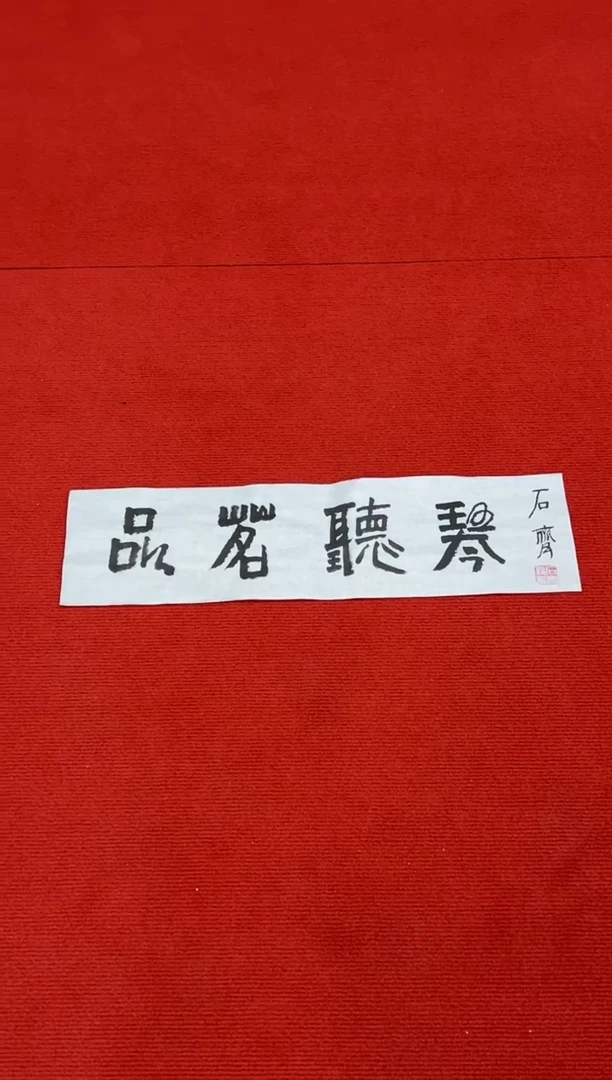 品茗聽琴
石齊